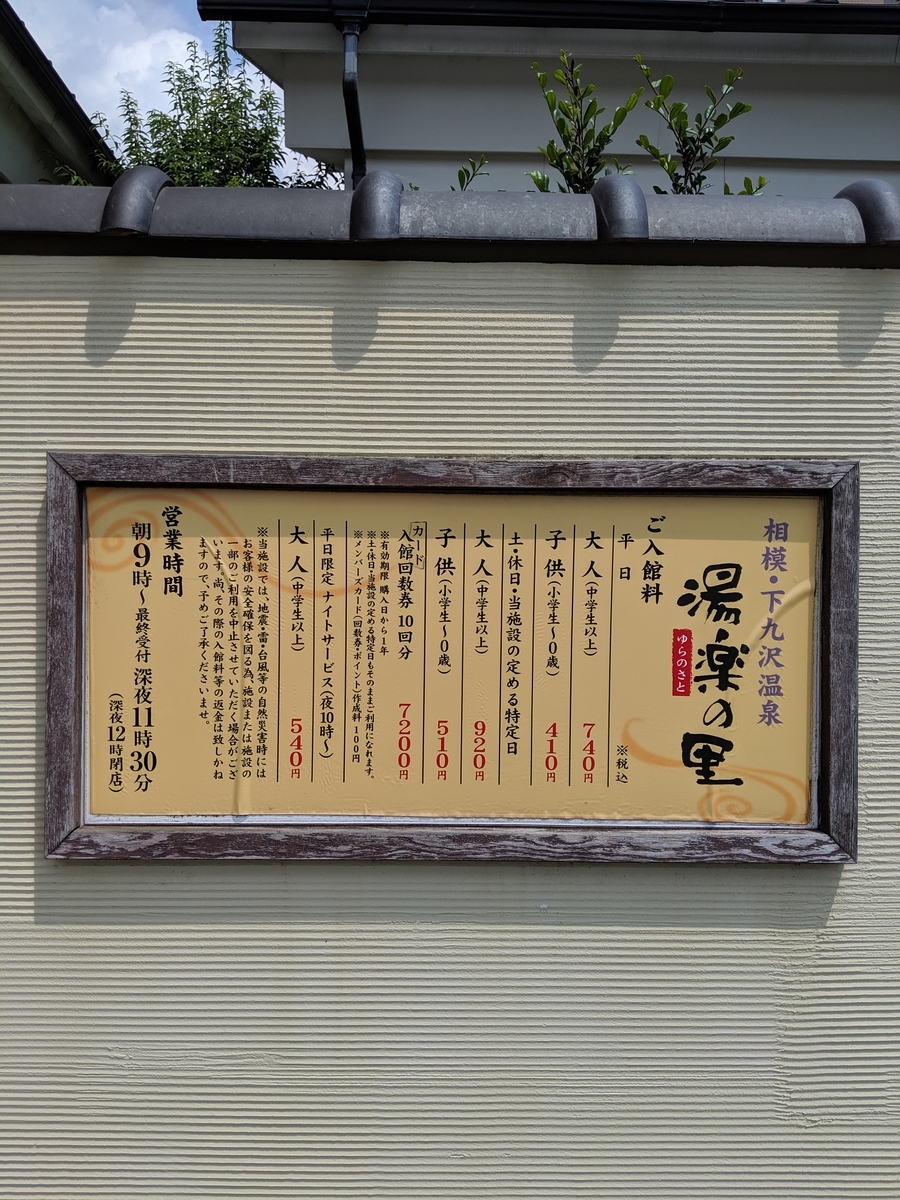 相模・下九沢温泉
湯楽の里
ゆらのさと
ご入館料
平日 ※税込
大人(中学生以上) 740円
子供(小学生~0歳) 410円
土・休日・当施設の定める特定日
大人(中学生以上) 920円
子供(小学生~0歳) 510円
カード
入館回数券 10回分 7200円
※有効期限 購入日から1年
※土・休日・当施設の定める特定日もそのままご利用になれます。
※メンバーズカード(回数券・ポイント)作成料 100円
平日限定 ナイトサービス(夜10時~)
大人(中学生以上) 540円
※当施設では、地震・雷・台風等の自然災害時には
お客様の安全確保を図る為、施設または施設の
一部のご利用を中止させていただく場合がござ
います。尚、その際の入館料等の返金は致しかね
ますので、予めご了承くださいませ。
営業時間
朝9時~最終受付 深夜11時30分
(深夜12時閉店)